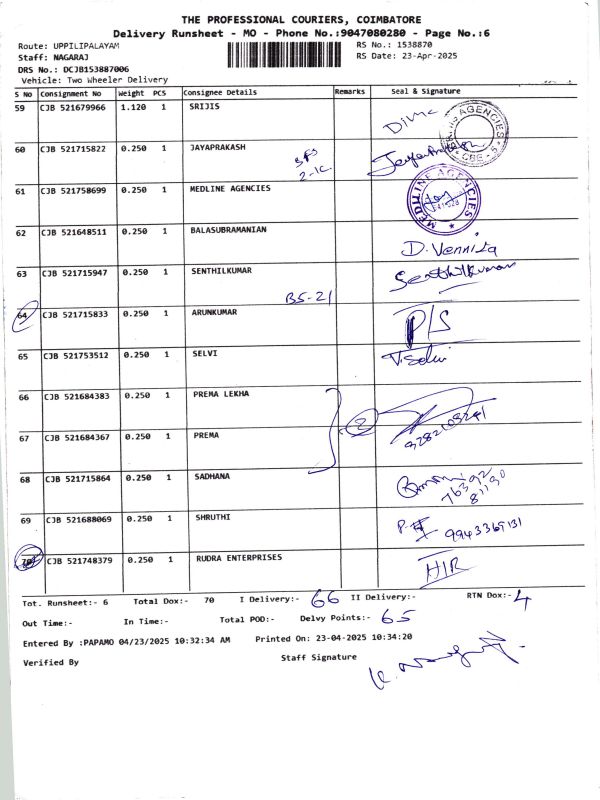 THE PROFESSIONAL COURIERS, COIMBATORE
Delivery Runsheet - MO - Phone No.:9047080280 - Page No.:6
Route: UPPILIPALAYAM RS No.: 1538870
Staff: NAGARAJ RS Date: 23-Apr-2025
DRS No.: DCJB153887006
Vehicle: Two Wheeler Delivery
S No Consignment No Weight PCS Consignee Details Remarks Seal & Signature
59 CJB 521679966 1.120 1 SRIJIS
60 CJB 521715822 0.250 1 JAYAPRAKASH
61 CJB 521758699 0.250 1 MEDLINE AGENCIES MEDLINE AGENCIES
62 CJB 521648511 0.250 1 BALASUBRAMANIAN
63 CJB 521715947 0.250 1 SENTHILKUMAR Senthilkumar
BS-21
64 CJB 521715833 0.250 1 ARUNKUMAR P/S
65 CJB 521753512 0.250 1 SELVI V.Selvi
66 CJB 521684383 0.250 1 PREMA LEKHA
2
67 CJB 521684367 0.250 1 PREMA
68 CJB 521715864 0.250 1 SADHANA
69 CJB 521688069 0.250 1 SHRUTHI
70 CJB 521748379 0.250 1 RUDRA ENTERPRISES
Tot. Runsheet:- 6 Total Dox:- 70 I Delivery:- 66 II Delivery:- RTN Dox:- 4
Out Time:- In Time:- Total POD:- Delvy Points:- 65
Entered By :PAPAMO 04/23/2025 10:32:34 AM Printed On: 23-04-2025 10:34:20
Verified By Staff Signature